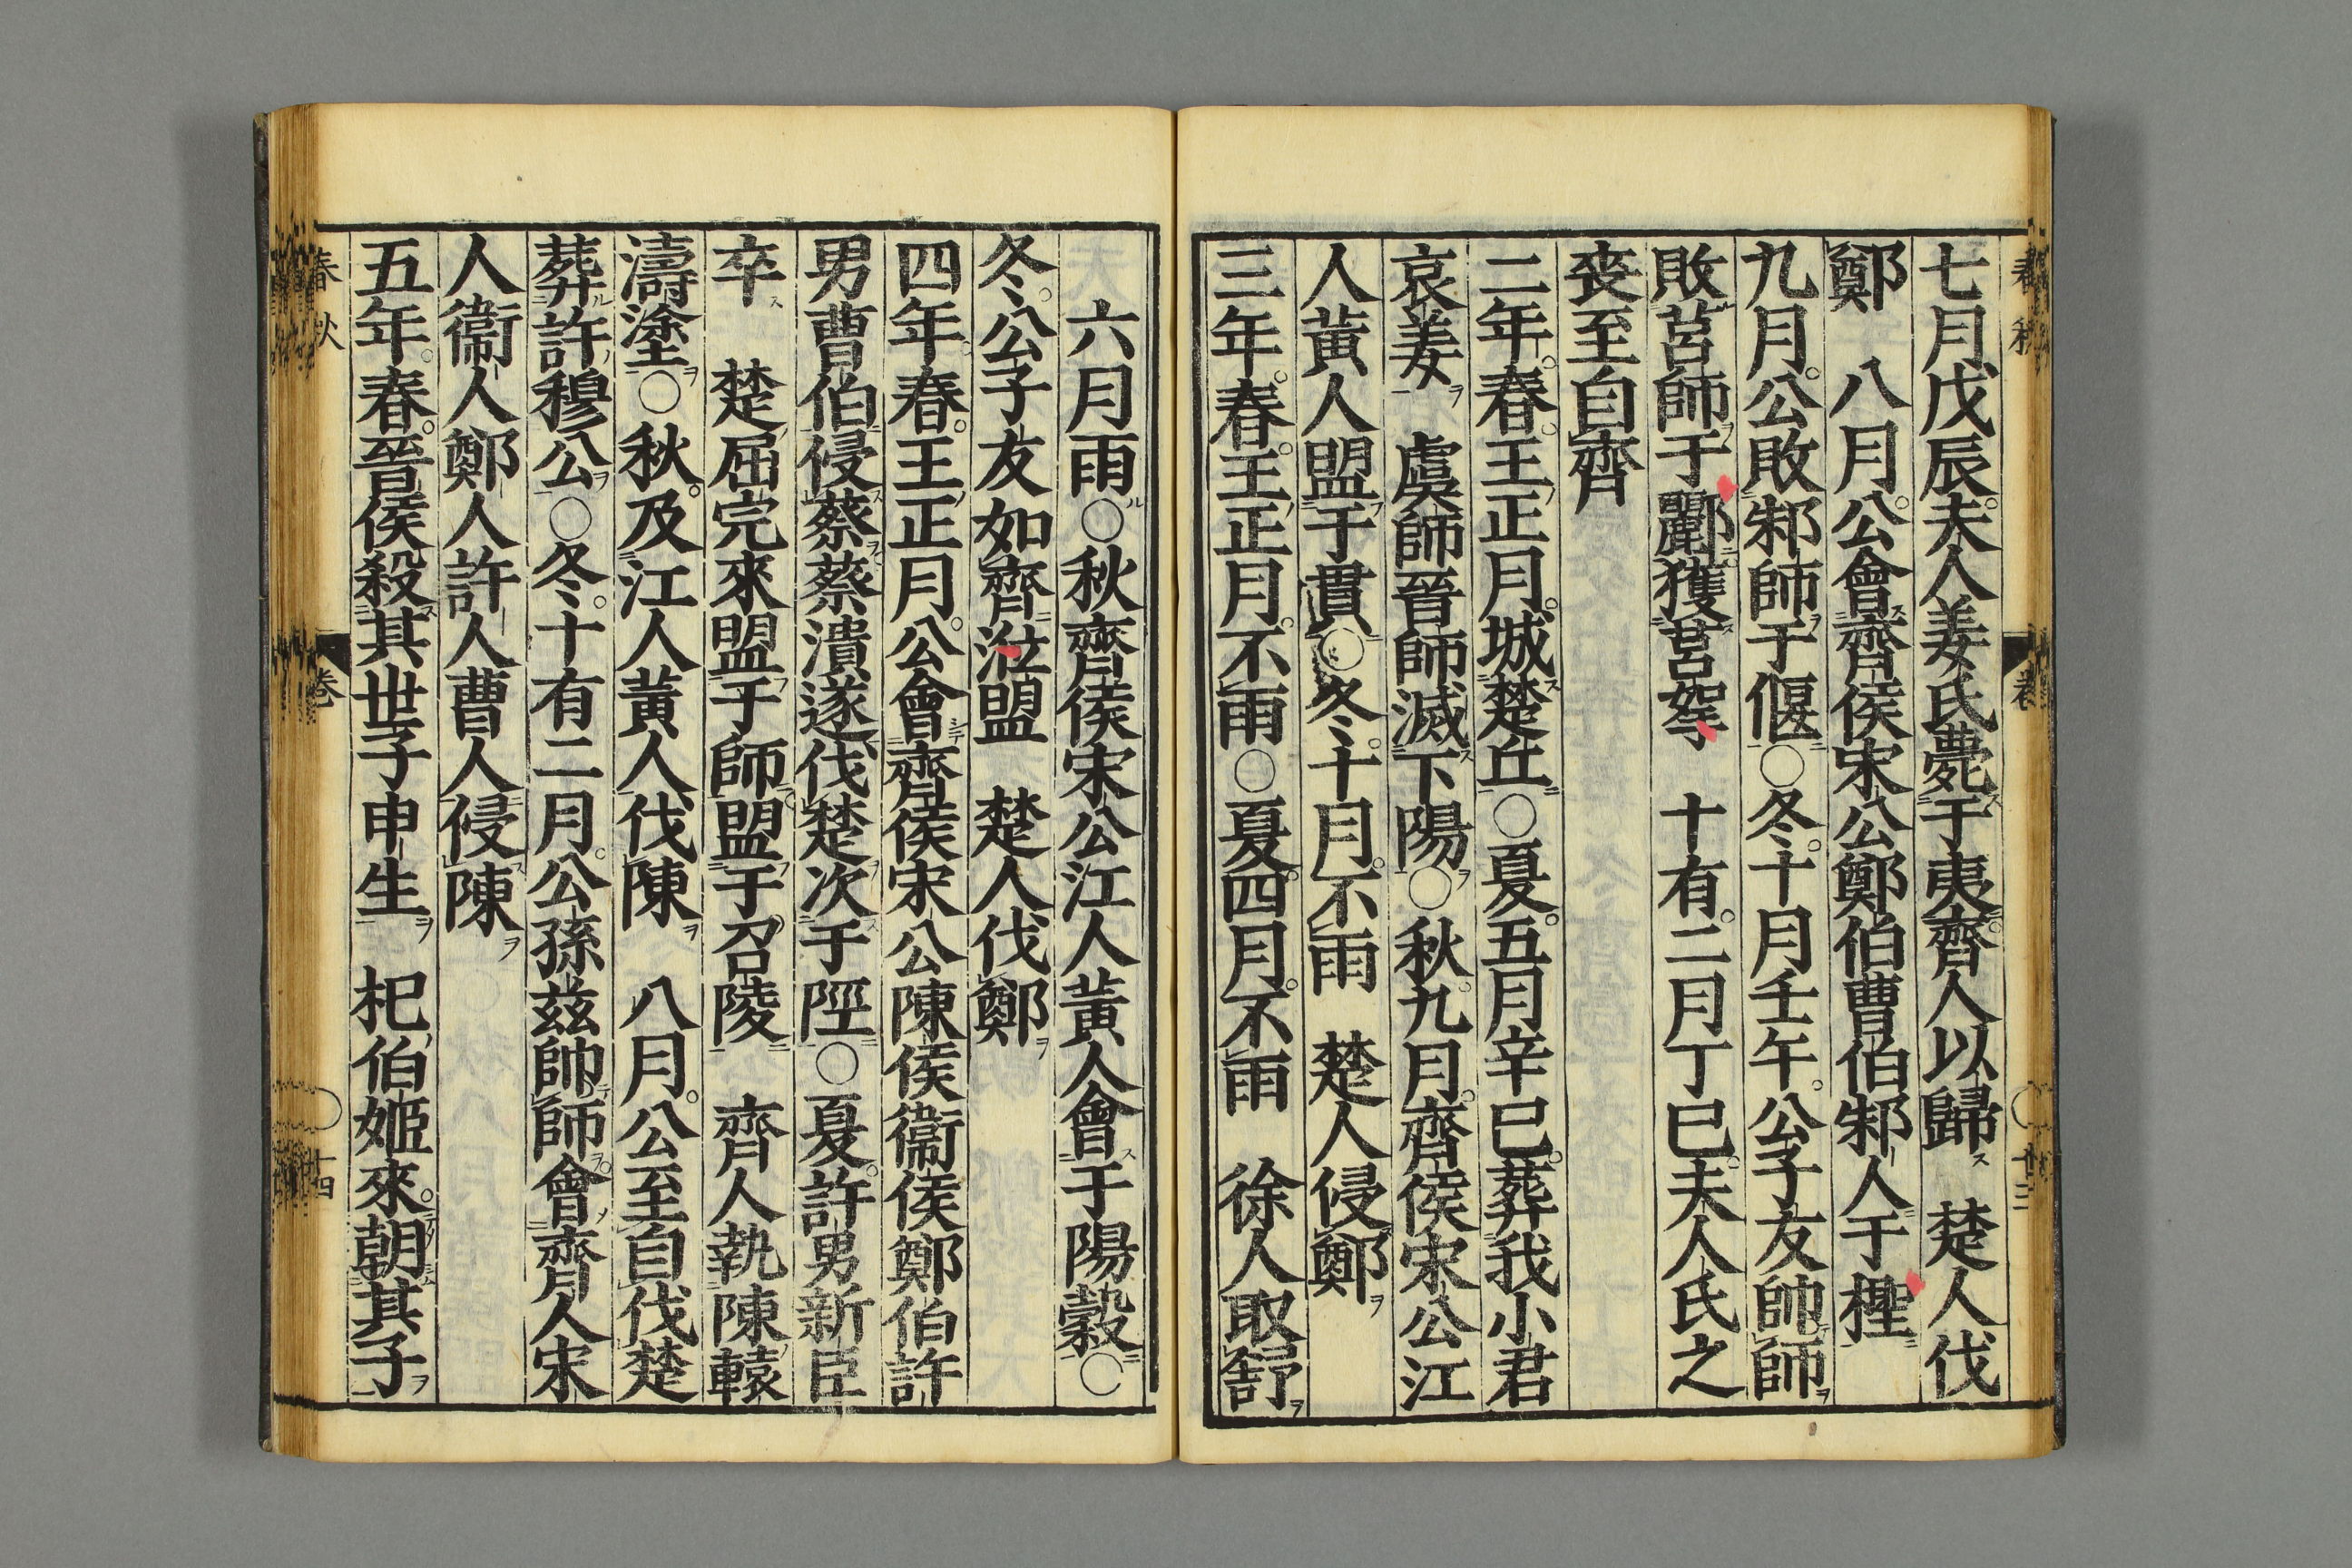 七月戊辰夫人姜氏薨于夷齊人以歸　楚人伐
鄭　八月公會齊侯宋公鄭伯曹伯邾人于檉
九月公敗邾師于偃○冬十月壬午公子友帥師
敗莒師于酈獲莒挐　十有二月丁巳夫人氏之
喪至自齊
二年春王正月城楚丘○夏五月辛巳葬我小君
哀姜　虞師晉師滅下陽○秋九月齊侯宋公江
人黃人盟于貫○冬十月不雨　楚人侵鄭
三年春王正月不雨○夏四月不雨　徐人取舒
六月雨○秋齊侯宋公江人黃人會于陽穀○
冬公子友如齊涖盟　楚人伐鄭
四年春王正月公會齊侯宋公陳侯衞侯鄭伯許
男曹伯侵蔡蔡潰遂伐楚次于陘○夏許男新臣
卒　楚屈完來盟于師盟于召陵　齊人執陳轅
濤塗○秋及江人黃人伐陳　八月公至自伐楚
葬許穆公○冬十有二月公孫茲帥師會齊人宋
人衞人鄭人許人曹人侵陳
五年春晉侯殺其世子申生　杞伯姬來朝其子
春秋　卷　十四